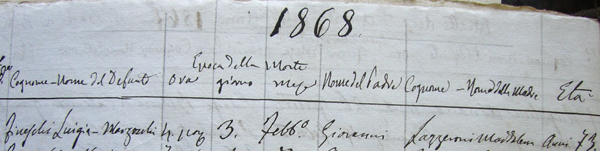 1868.
Epoca della Morte
Cognome - Nome del Defunto ora giorno mese Nome del Padre Cognome - Nome della Madre Età
Luigia - 3. Febb.o Giovanni Lazzeroni Maddalena Anni 73.